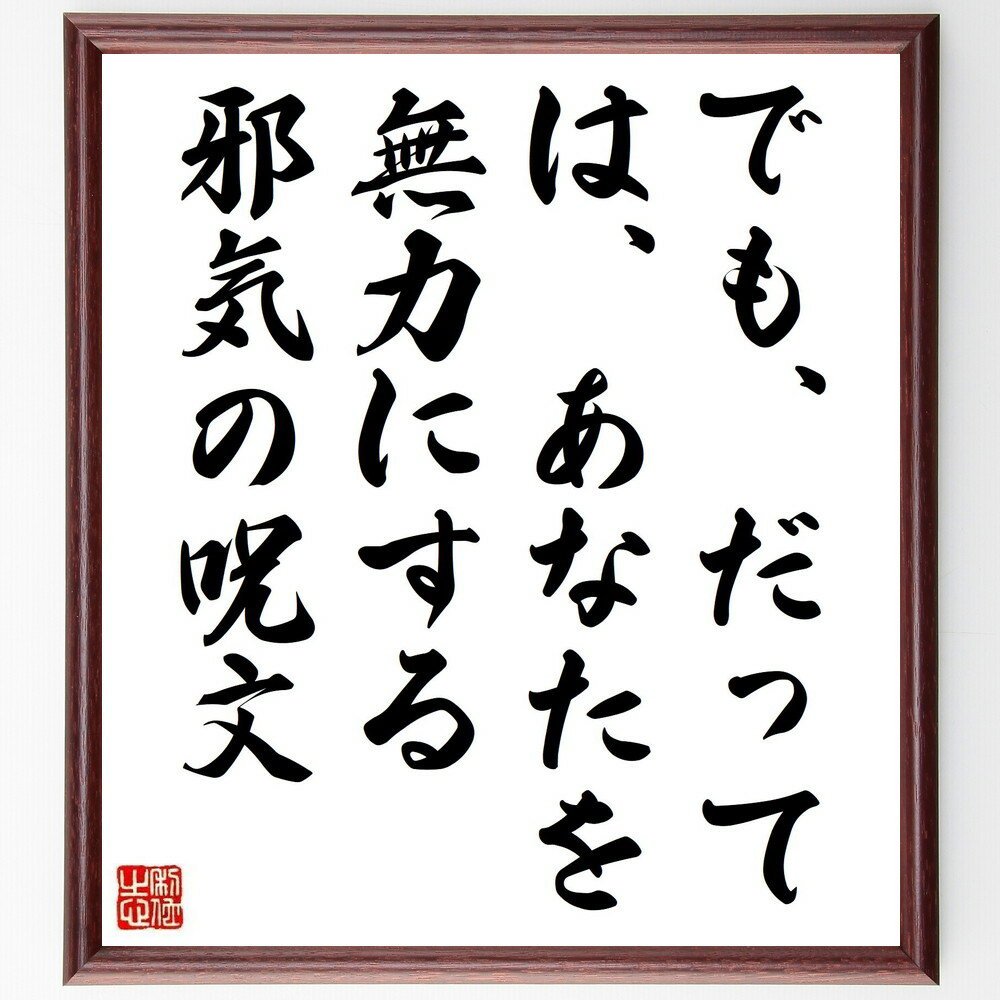 でも、だって
は、あなたを
無力にする
邪気の呪文